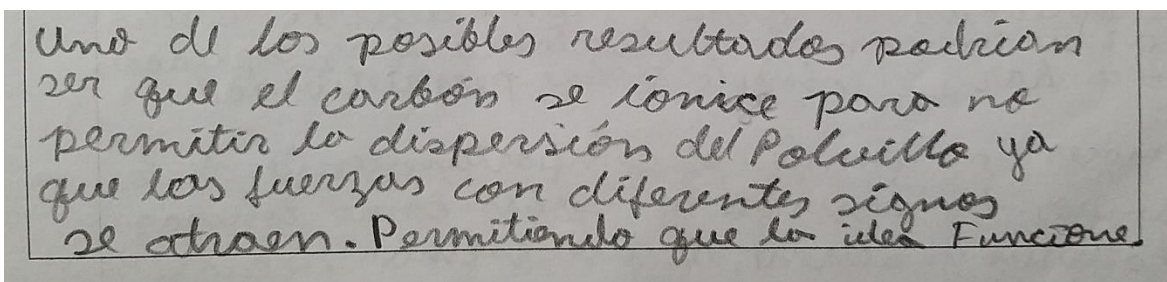 Uno de los posibles resultados podrian
ser que el carbón se ionice para no
permitir la dispersión del Polvillo ya
que las fuerzas con diferentes signos
se atraen. Permitiendo que la idea Funcione.